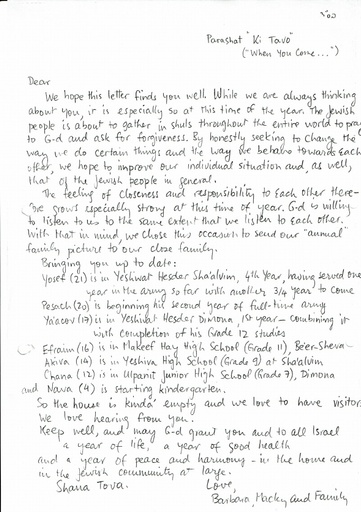 Parashat "Ki Tavo"
("When You Come...")
Dear
We hope this letter finds you well. While we are always thinking
about you, it is especially so at this time of the year. The Jewish
people is about to gather in shuls throughout the entire world to pray
to G-d and ask for forgiveness. By honestly seeking to change the
way we do certain things and the way we behave towards each
other, we hope to improve our individual situation and, as well,
that of the Jewish people in general.
The feeling of closeness and responsibility to each other there-
fore grows especially strong at this time of year. G-d is willing
to listen to us to the same extent that we listen to each other.
With that in mind, we chose this occasion to send our "annual"
family picture to our close family.
Bringing you up to date:
Yosef (21) is in Yeshivat Hesder Sha'alvim, 4th Year, having served one
year in the army so far with another 3/4 year to come
Pesach (20) is beginning his second year of full-time army
Ya'acov (17) is in Yeshivat Hesder Dimona, 1st year - combining it
with completion of his Grade 12 studies
Efraim (16) is in Makeef Hay High School (Grade 11), Be'er-Sheva-
Akiva (14) is in Yeshiva High School (Grade 9) at Sha'alvim
Chana (12) is in Ulpanit Junior High School (Grade 7), Dimona
and Nava (4) is starting kindergarten.
So the house is kinda' empty and we love to have visitors
We love hearing from you.
Keep well, and may G-d grant you and to all Israel
a year of life, a year of good health
and a year of peace and harmony - in the home and
in the Jewish community at large.
Shana Tova. Love,
Barbara, Macky and Family